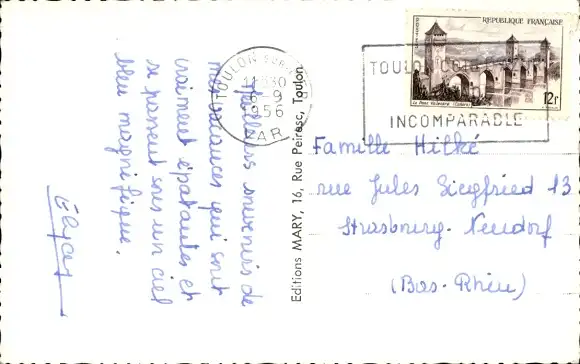 Meilleurs souvenirs de
mes vacances qui sont
vraiment épatantes et
se passent sous un ciel
bleu magnifique.
Editions MARY, 16, Rue Peiresc, Toulon.
TOULON
6-9
1956
VAR
TOULON
INCOMPARABLE
REPUBLIQUE FRANÇAISE
Le Pont Valentré (Cahors)
12F
Famille Hilké
rue Jules Siegfried 13
Strasbourg-Neudorf
(Bas-Rhin)